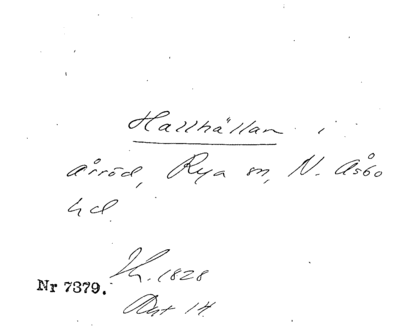 Hallhällan i
Årröd, Rya sn, N. Åsbo
hd
Jh. 1828
Nr 7379.
Akt 14.